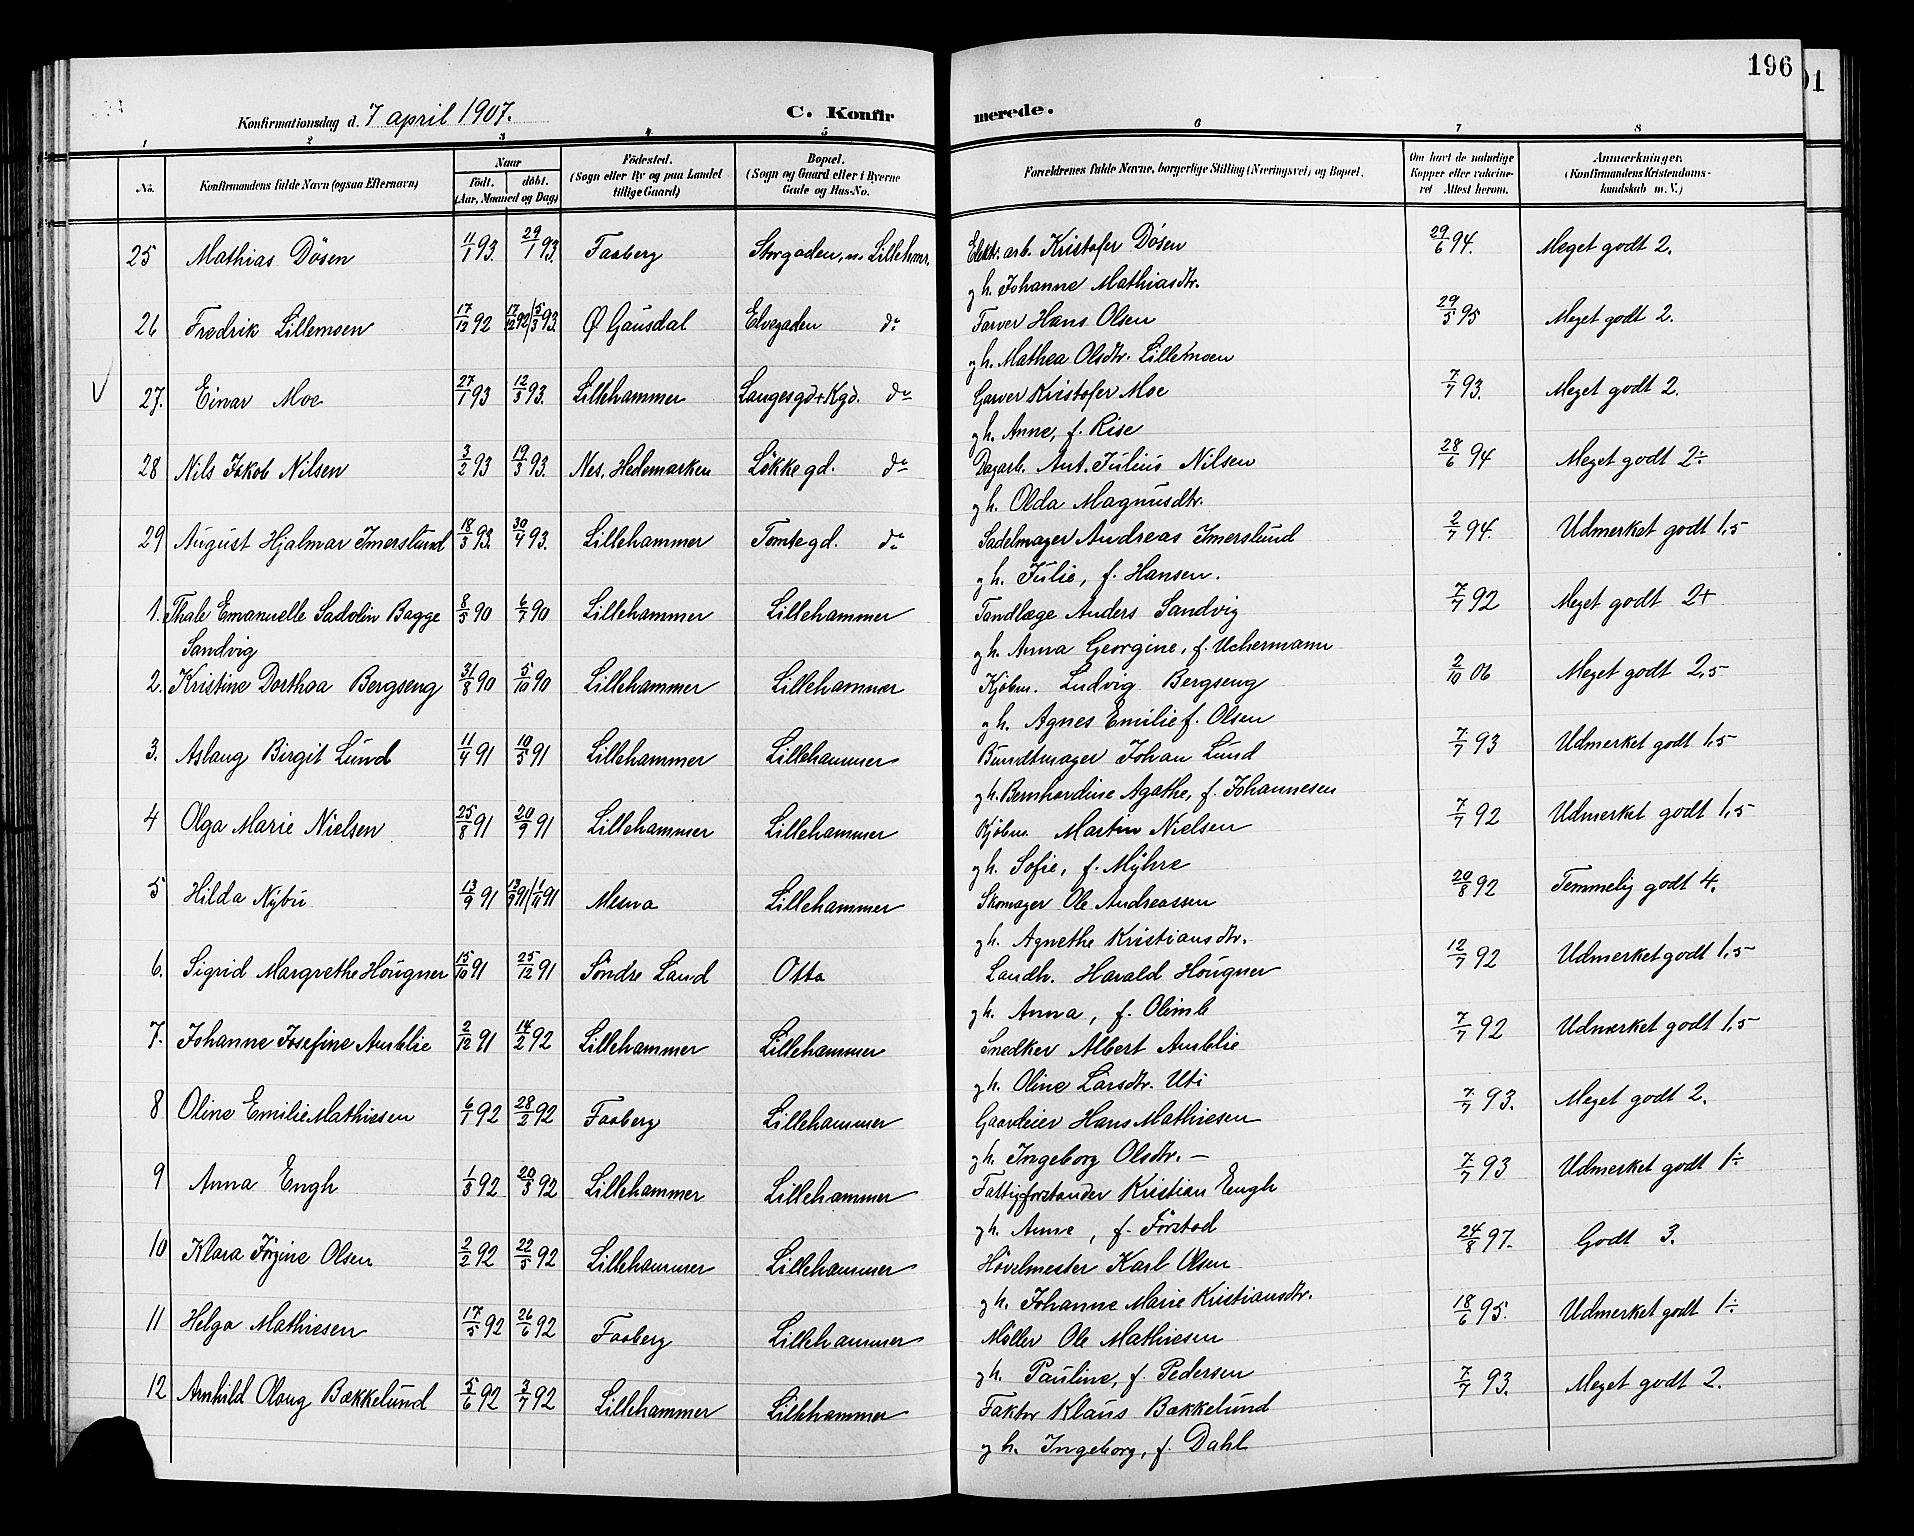 196
Konfirmationsdag d. 7 april 1907.
C. Konfirmerede.
1 2 3 4 5 6 7 8
No. Konfirmandens fulde Navn (ogsaa Efternavn) Naar født. døbt. (Aar, Maaned og Dag) Fødested. (Sogn eller By og paa Landet tillige Gaard) Bopæl. (Sogn og Gaard eller i Byerne Gade og Hus-No. Forældrenes fulde Navne, borgerlige Stilling (Næringsvei) og Bopæl. Om havt de naturlige Kopper eller vakcineret Attest herom. Anmærkninger. (Konfirmandens Kristendomskundskab m. V.)
25 Mathias Døsen 11/1 93. 29/1 93. Faaberg Storgaden, n. Lillehmr. Elektr. arb. Kristofer Døsen 29/6 94. Meget godt 2.
gh. Johanne Mathiasdtr.
26 Fredrik Lillemoen 17/12 92 17/12 92/ 5/3 93. Ø Gausdal Elvegaden do Farver Hans Olsen 29/5 95 Meget godt 2.
gh. Mathea Olsdtr. Lillemoen
27. Einar Moe 27/1 93 12/3 93. Lillehammer Langesgd + Kgd. do Garver Kristofer Moe 7/7 93. Meget godt 2.
gh. Anne, f. Rise
28 Nils Jakob Nilsen 3/2 93 19/3 93. Nes, Hedemarken Løkkegd. do Dagarb. Ant. Julius Nilsen 28/6 94 Meget godt 2÷
gh. Olda Magnusdtr.
29 August Hjalmar Imerslund 18/3 93. 30/4 93. Lillehammer Tomtegd. do Sadelmager Andreas Imerslund 2/7 94. Udmerket godt 1,5
gh. Julie, f. Hansen.
1. Thale Emanuelle Sadolin Bagge 8/5 90 6/7 90 Lillehammer Lillehammer Tandlæge Anders Sandvig 7/7 92 Meget godt 2+
Sandvig gh. Anna Georgine, f. Uchermann
2. Kristine Dorthea Bergseng 31/8 90 5/10 90 Lillehammer Lillehammer Kjøbm. Ludvig Bergseng 2/10 06 Meget godt 2,5
gh. Agnes Emilie f. Olsen
3. Aslaug Birgit Lund 11/4 91 10/5 91 Lillehammer Lillehammer Bundtmager Johan Lund 7/7 93 Udmerket godt 1,5
gh. Bernhardine Agathe, f. Johannesen
4 Olga Marie Nielsen 25/8 91 20/9 91 Lillehammer Lillehammer Kjøbm. Martin Nielsen 7/7 92 Udmerket godt 1,5
gh. Sofie, f. Myhre
5 Hilda Nybu 13/9 91 13/9 91/ 1/11 91 Mesna Lillehammer Skomager Ole Andreassen 20/8 92 Temmelig godt 4.
gh. Agnethe Kristiansdtr.
6. Sigrid Margrethe Hougner 15/10 91 25/12 91 Søndre Land Otta Landh. Harald Hougner 12/7 92 Udmerket godt 1,5
gh. Anna, f. Olimb
7. Johanne Josefine Amblie 2/12 91 14/2 92 Lillehammer Lillehammer Snedker Albert Amblie 7/7 92 Udmerket godt 1,5
gh. Oline Larsdtr. Uti
8 Oline Emilie Mathiesen 6/1 92 28/2 92 Faaberg Lillehammer Gaardeier Hans Mathiesen 7/7 93. Meget godt 2.
gh. Ingeborg Olsdtr. –
9 Anna Engh 1/3 92 20/3 92 Lillehammer Lillehammer Fattigforstander Kristian Engh 7/7 93 Udmerket godt 1÷
gh. Anne, f. Førstad
10 Klara Jørgine Olsen 2/2 92 22/5 92 Lillehammer Lillehammer Høvelmester Karl Olsen 24/8 97. Godt 3.
gh. Johanne Marie Kristiansdtr.
11 Helga Mathiesen 17/5 92 26/6 92 Faaberg Lillehammer Møller Ole Mathiesen 18/6 95. Udmerket godt 1÷
gh. Pauline, f. Pedersen
12 Arnhild Olaug Bækkelund 5/6 92 3/7 92 Lillehammer Lillehammer Faktor Klaus Bækkelund 7/7 93. Meget godt 2.
gh. Ingeborg, f. Dahl